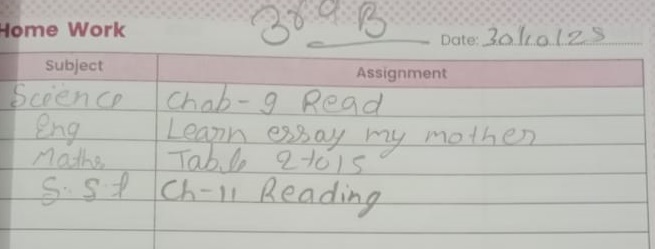 3rd B
Home Work Date: 30/10/25
Subject Assignment
Science Chab-9 Read
Eng Learn essay my mother
Maths Table 2 to 15
S.St Ch-11 Reading